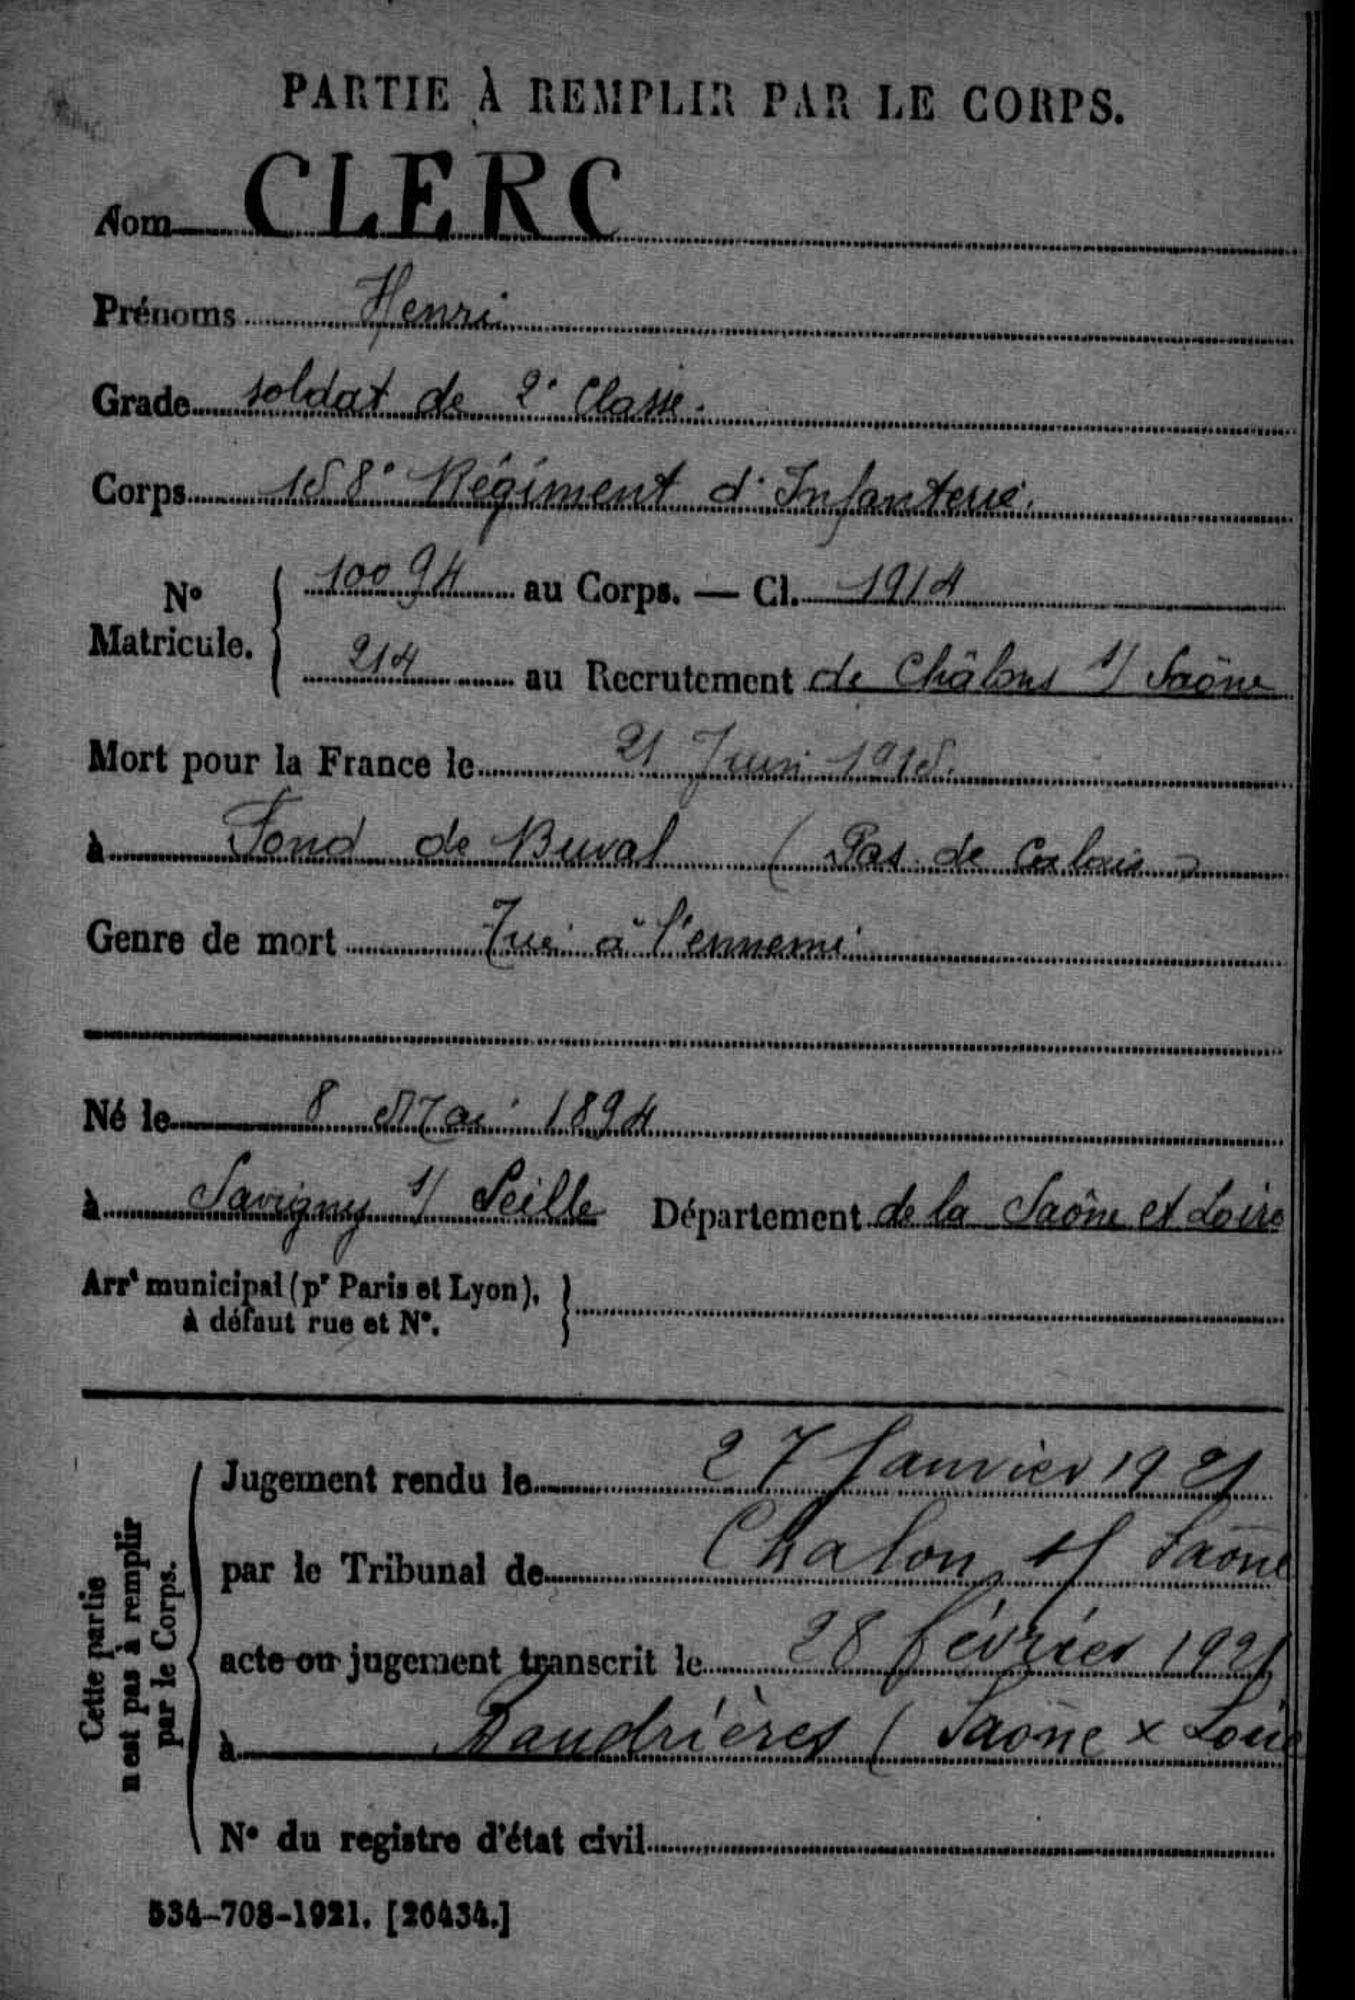 PARTIE À REMPLIR PAR LE CORPS.
Nom CLERC
Prénoms Henri
Grade soldat de 2e Classe.
Corps 158e Régiment d'Infanterie.
No Matricule. { 10094 au Corps. — Cl. 1914
214 au Recrutement de Châlons s/ Saône
Mort pour la France le 21 Juin 1915.
à Fond de Buval (Pas de Calais)
Genre de mort Tué à l'ennemi
Né le 8 Mai 1894
à Savigny s/ Seille Département de la Saône et Loire
Arrt municipal (pr Paris et Lyon), }
à défaut rue et No.
Cette partie n'est pas à remplir par le Corps. {
Jugement rendu le 27 Janvier 1921
par le Tribunal de Chalon s/ Saône
acte ou jugement transcrit le 28 février 1921
à Baudrières (Saône & Loire
No du registre d'état civil
534-708-1921. [26434.]